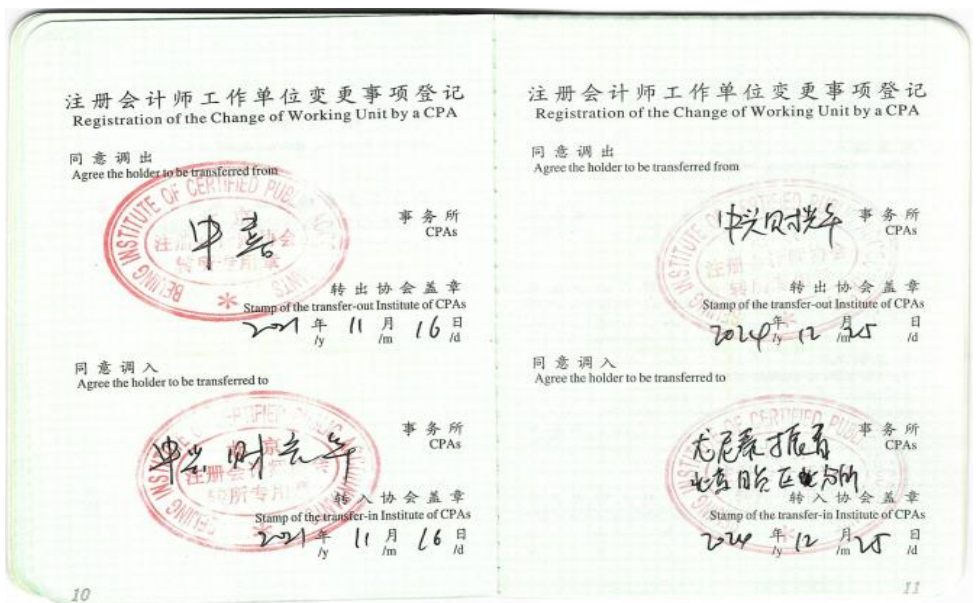 注册会计师工作单位变更事项登记
Registration of the Change of Working Unit by a CPA
同意调出
Agree the holder to be transferred from
BEIJING INSTITUTE OF CERTIFIED PUBLIC ACCOUNTANTS
中喜
事务所
CPAs
转所专用章
转出协会盖章
Stamp of the transfer-out Institute of CPAs
2021 年 11 月 16 日
/y /m /d
同意调入
Agree the holder to be transferred to
中兴财光华
事务所
CPAs
转所专用章
转入协会盖章
Stamp of the transfer-in Institute of CPAs
2021 年 11 月 16 日
/y /m /d
10
注册会计师工作单位变更事项登记
Registration of the Change of Working Unit by a CPA
同意调出
Agree the holder to be transferred from
中兴财光华
事务所
CPAs
转出协会盖章
Stamp of the transfer-out Institute of CPAs
2024 年 12 月 25 日
/y /m /d
同意调入
Agree the holder to be transferred to
尤尼泰振青
事务所
CPAs
北京自贸区 分所
转入协会盖章
Stamp of the transfer-in Institute of CPAs
2024 年 12 月 25 日
/y /m /d
11